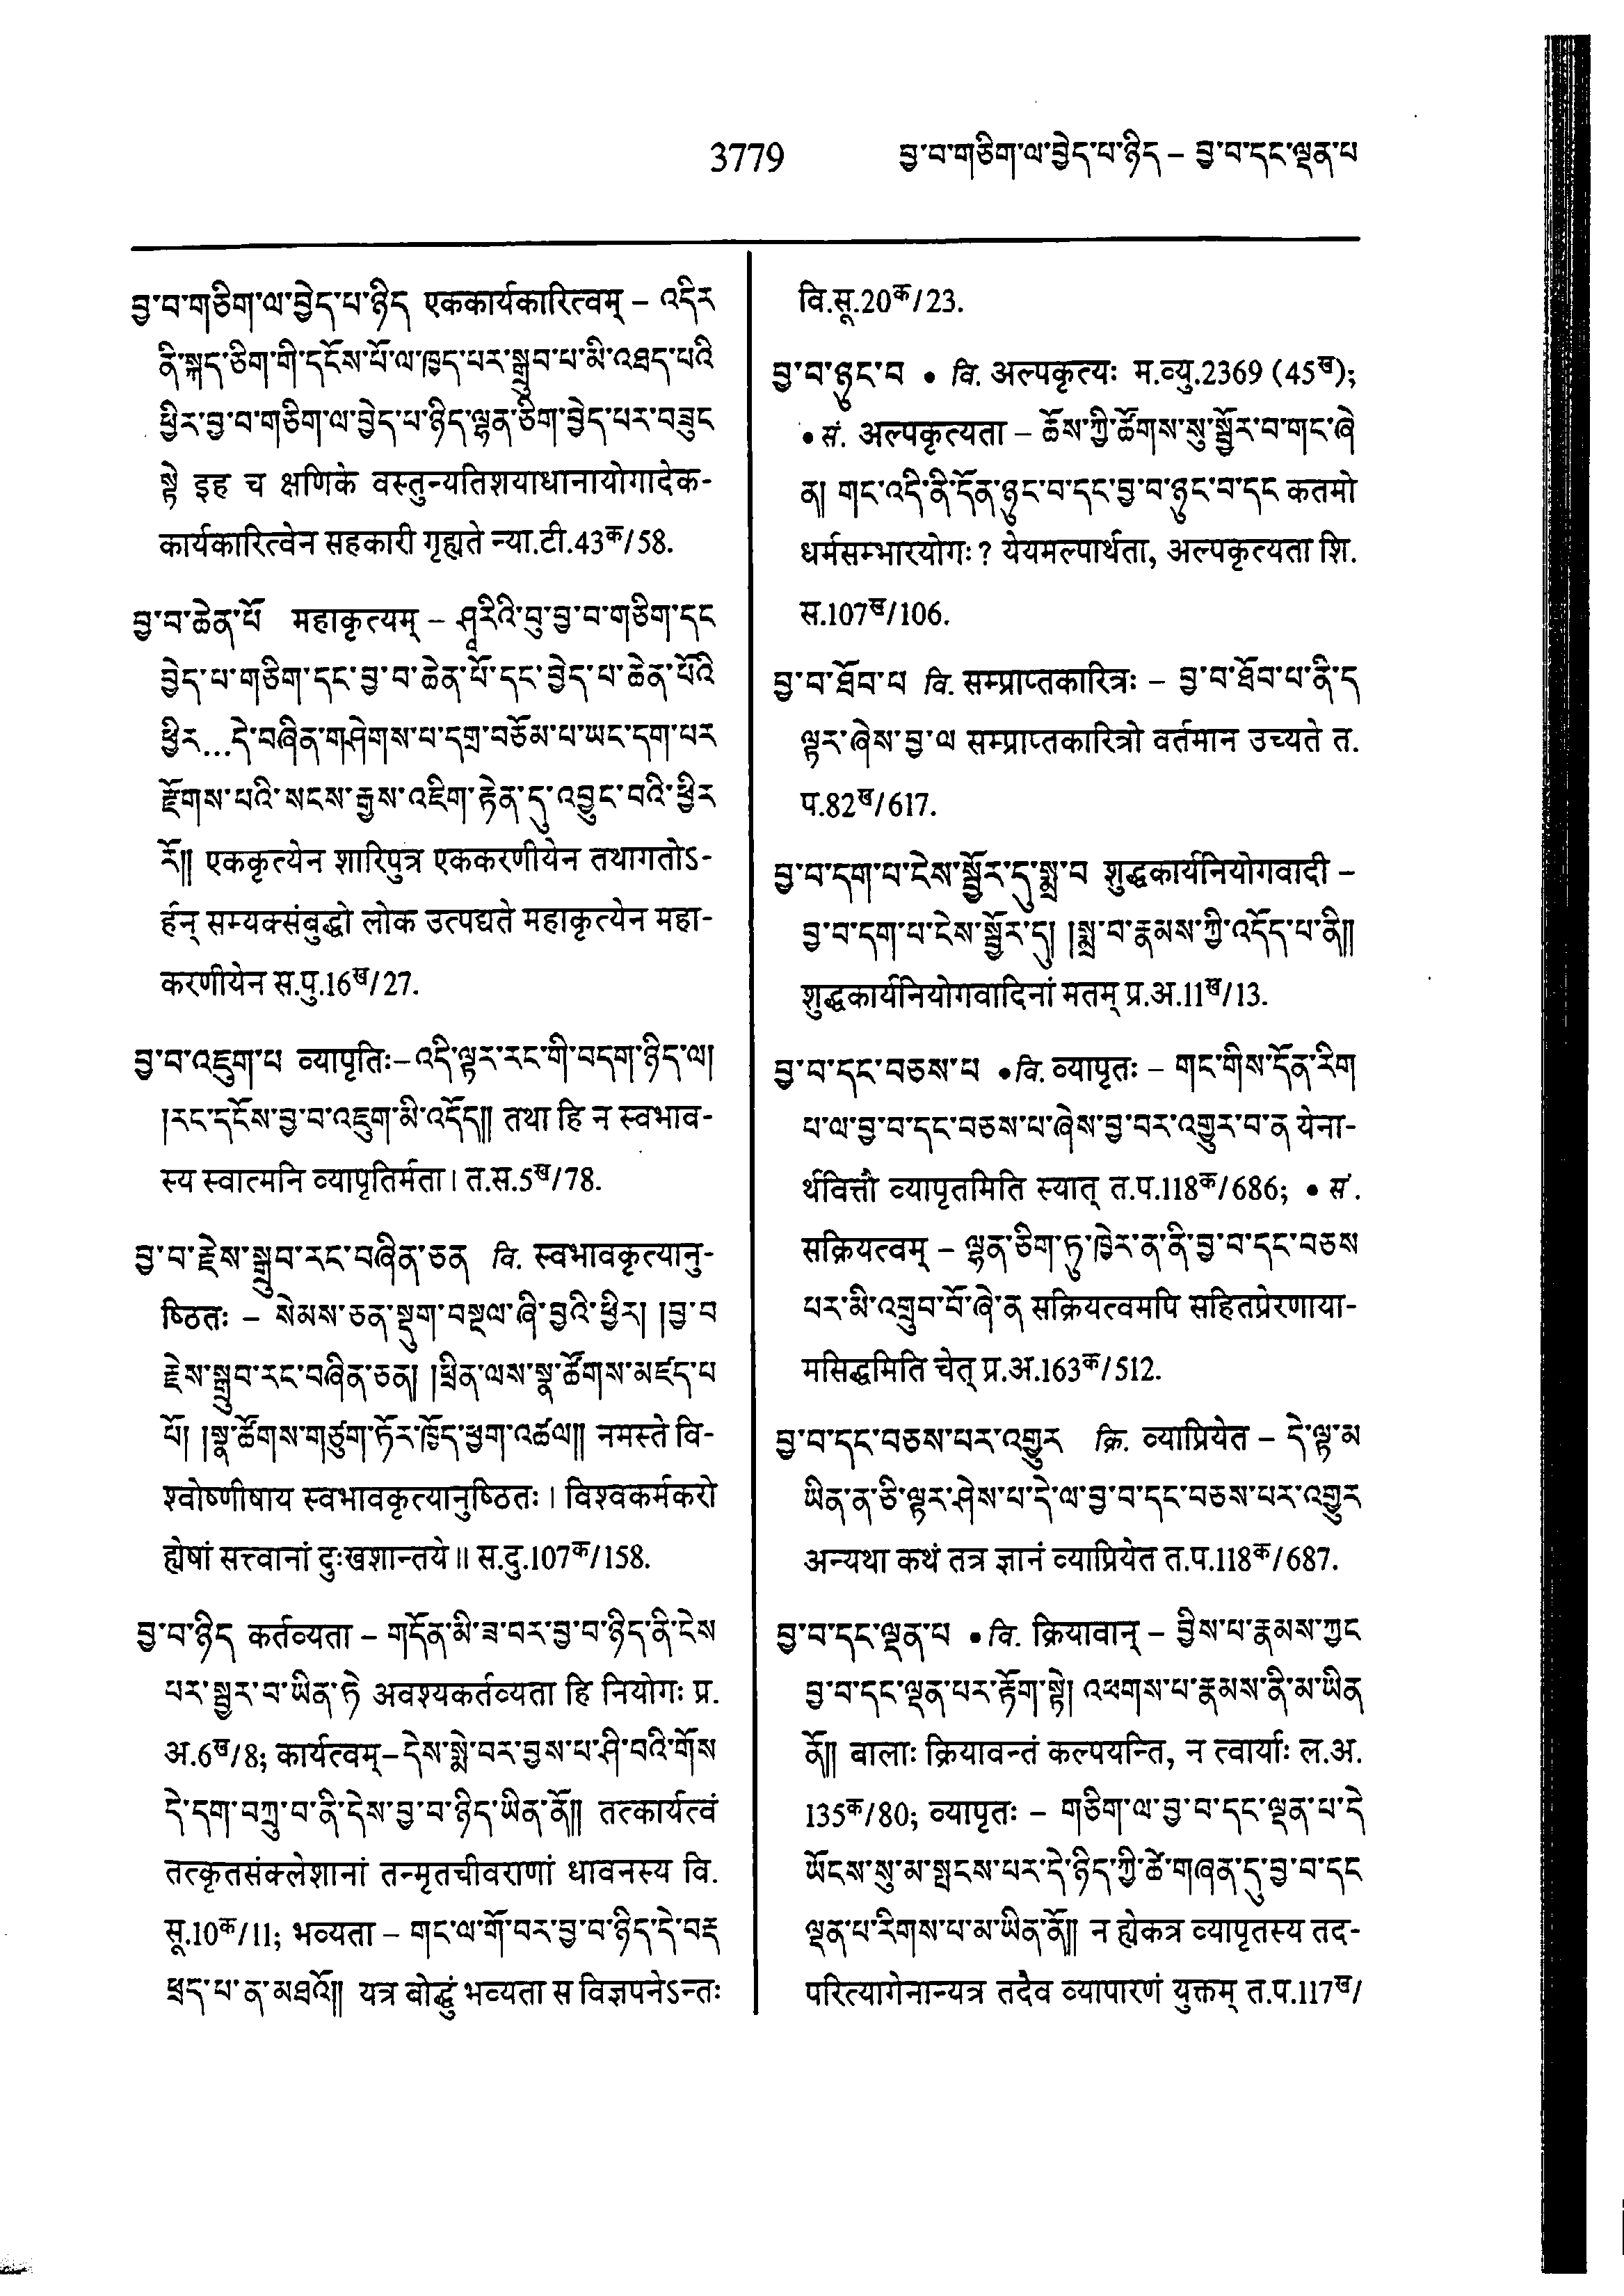 3779
བྱ་བ་གཅིག་ལ་བྱེད་པ་ཉིད – བྱ་བ་དང་ལྡན་པ
བྱ་བ་གཅིག་ལ་བྱེད་པ་ཉིད एककार्यकारित्वम् – འདིར
ནི་སྐད་ཅིག་གི་དངོས་པོ་ལ་ཁྱད་པར་སྒྲུབ་པ་མི་འཐད་པའི
ཕྱིར་བྱ་བ་གཅིག་ལ་བྱེད་པ་ཉིད་ལྷན་ཅིག་བྱེད་པར་བཟུང
སྟེ इह च क्षणिके वस्तुन्यतिशयाधानायोगादेक-
कार्यकारित्वेन सहकारी गृह्यते न्या.टी.43क/58.
བྱ་བ་ཆེན་པོ महाकृत्यम् – ཤཱ་རིའི་བུ་བྱ་བ་གཅིག་དང
བྱེད་པ་གཅིག་དང་བྱ་བ་ཆེན་པོ་དང་བྱེད་པ་ཆེན་པོའི
ཕྱིར...དེ་བཞིན་གཤེགས་པ་དགྲ་བཅོམ་པ་ཡང་དག་པར
རྫོགས་པའི་སངས་རྒྱས་འཇིག་རྟེན་དུ་འབྱུང་བའི་ཕྱིར
རོ།། एककृत्येन शारिपुत्र एककरणीयेन तथागतोऽ-
र्हन् सम्यक्संबुद्धो लोक उत्पद्यते महाकृत्येन महा-
करणीयेन स.पु.16ख/27.
བྱ་བ་འཇུག་པ व्यापृतिः–འདི་ལྟར་རང་གི་བདག་ཉིད་ལ།
།རང་དངོས་བྱ་བ་འཇུག་མི་འདོད།། तथा हि न स्वभाव-
स्य स्वात्मनि व्यापृतिर्मता। त.स.5ख/78.
བྱ་བ་རྗེས་སྒྲུབ་རང་བཞིན་ཅན वि. स्वभावकृत्यानु-
ष्ठितः – སེམས་ཅན་སྡུག་བསྔལ་ཞི་བྱའི་ཕྱིར། །བྱ་བ
རྗེས་སྒྲུབ་རང་བཞིན་ཅན། །ཕྲིན་ལས་སྣ་ཚོགས་མཛད་པ
པོ། །སྣ་ཚོགས་གཙུག་ཏོར་ཁྱོད་ཕྱག་འཚལ།། नमस्ते वि-
श्वोष्णीषाय स्वभावकृत्यानुष्ठितः। विश्वकर्मकरो
ह्येषां सत्त्वानां दुःखशान्तये॥ स.दु.107क/158.
བྱ་བ་ཉིད कर्तव्यता – གདོན་མི་ཟ་བར་བྱ་བ་ཉིད་ནི་ངེས
པར་སྦྱར་བ་ཡིན་ཏེ अवश्यकर्तव्यता हि नियोगः प्र.
अ.6ख/8; कार्यत्वम्–དེས་སྨེ་བར་བྱས་པ་ཤི་བའི་གོས
དེ་དག་བཀྲུ་བ་ནི་དེས་བྱ་བ་ཉིད་ཡིན་ནོ།། तत्कार्यत्वं
तत्कृतसंक्लेशानां तन्मृतचीवराणां धावनस्य वि.
सू.10क/11; भव्यता – གང་ལ་གོ་བར་བྱ་བ་ཉིད་དེ་བརྡ
ཕྲད་པ་ན་མཐའོ།། यत्र बोद्धुं भव्यता स विज्ञपनेऽन्तः
वि.सू.20क/23.
བྱ་བ་ཉུང་བ • वि. अल्पकृत्यः म.व्यु.2369 (45ख);
• सं. अल्पकृत्यता – ཆོས་ཀྱི་ཚོགས་སུ་སྦྱོར་བ་གང་ཞེ
ན། གང་འདི་ནི་དོན་ཉུང་བ་དང་བྱ་བ་ཉུང་བ་དང कतमो
धर्मसम्भारयोगः? येयमल्पार्थता, अल्पकृत्यता शि.
स.107ख/106.
བྱ་བ་ཐོབ་པ वि. सम्प्राप्तकारित्रः – བྱ་བ་ཐོབ་པ་ནི་ད
ལྟར་ཞེས་བྱ་ལ सम्प्राप्तकारित्रो वर्तमान उच्यते त.
प.82ख/617.
བྱ་བ་དག་པ་ངེས་སྦྱོར་དུ་སྨྲ་བ शुद्धकार्यनियोगवादी –
བྱ་བ་དག་པ་ངེས་སྦྱོར་དུ། །སྨྲ་བ་རྣམས་ཀྱི་འདོད་པ་ནི།།
शुद्धकार्यनियोगवादिनां मतम् प्र.अ.11ख/13.
བྱ་བ་དང་བཅས་པ •वि. व्यापृतः – གང་གིས་དོན་རིག
པ་ལ་བྱ་བ་དང་བཅས་པ་ཞེས་བྱ་བར་འགྱུར་བ་ན येना-
र्थवित्तौ व्यापृतमिति स्यात् त.प.118क/686; • सं.
सक्रियत्वम् – ལྷན་ཅིག་ཏུ་ཁྱེར་ན་ནི་བྱ་བ་དང་བཅས
པར་མི་འགྲུབ་བོ་ཞེ་ན सक्रियत्वमपि सहितप्रेरणाया-
मसिद्धमिति चेत् प्र.अ.163क/512.
བྱ་བ་དང་བཅས་པར་འགྱུར क्रि. व्याप्रियेत – དེ་ལྟ་མ
ཡིན་ན་ཅི་ལྟར་ཤེས་པ་དེ་ལ་བྱ་བ་དང་བཅས་པར་འགྱུར
अन्यथा कथं तत्र ज्ञानं व्याप्रियेत त.प.118क/687.
བྱ་བ་དང་ལྡན་པ •वि. क्रियावान् – བྱིས་པ་རྣམས་ཀྱང
བྱ་བ་དང་ལྡན་པར་རྟོག་སྟེ། འཕགས་པ་རྣམས་ནི་མ་ཡིན
ནོ།། बालाः क्रियावन्तं कल्पयन्ति, न त्वार्याः ल.अ.
135क/80; व्यापृतः – གཅིག་ལ་བྱ་བ་དང་ལྡན་པ་དེ
ཡོངས་སུ་མ་སྤངས་པར་དེ་ཉིད་ཀྱི་ཚེ་གཞན་དུ་བྱ་བ་དང
ལྡན་པ་རིགས་པ་མ་ཡིན་ནོ།། न ह्येकत्र व्यापृतस्य तद-
परित्यागेनान्यत्र तदैव व्यापारणं युक्तम् त.प.117ख/